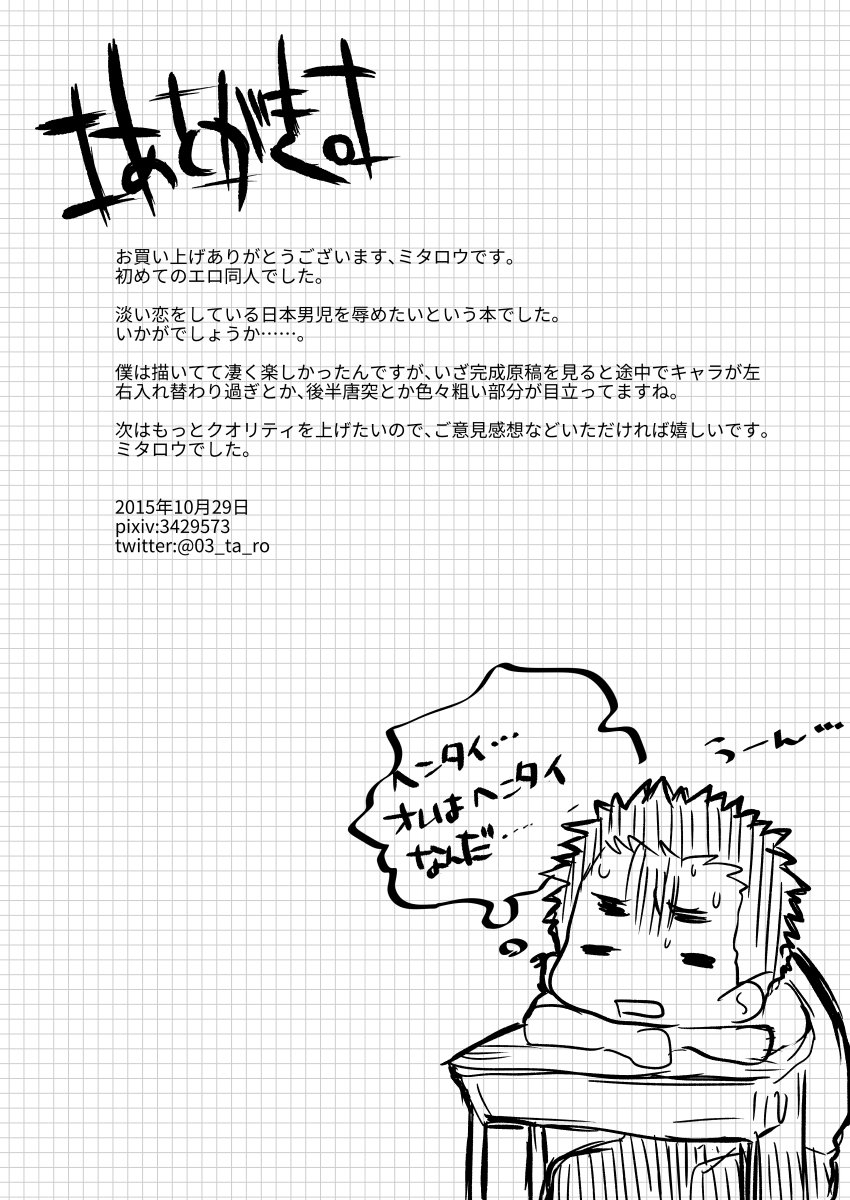 あとがきっ。
お買い上げありがとうございます、ミタロウです。
初めてのエロ同人でした。
淡い恋をしている日本男児を辱めたいという本でした。
いかがでしょうか……。
僕は描いてて凄く楽しかったんですが、いざ完成原稿を見ると途中でキャラが左
右入れ替わり過ぎとか、後半唐突とか色々粗い部分が目立ってますね。
次はもっとクオリティを上げたいので、ご意見感想などいただければ嬉しいです。
ミタロウでした。
2015年10月29日
pixiv:3429573
twitter:@03_ta_ro
うーん…
ヘンタイ…
オレはヘンタイ
なんだ…